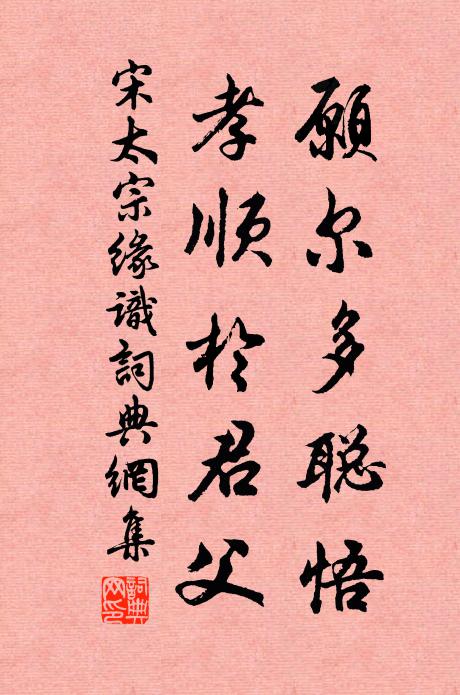 願尔多聪悟
孝順於君父
宋太宗緣識詞典網集
詞典网印